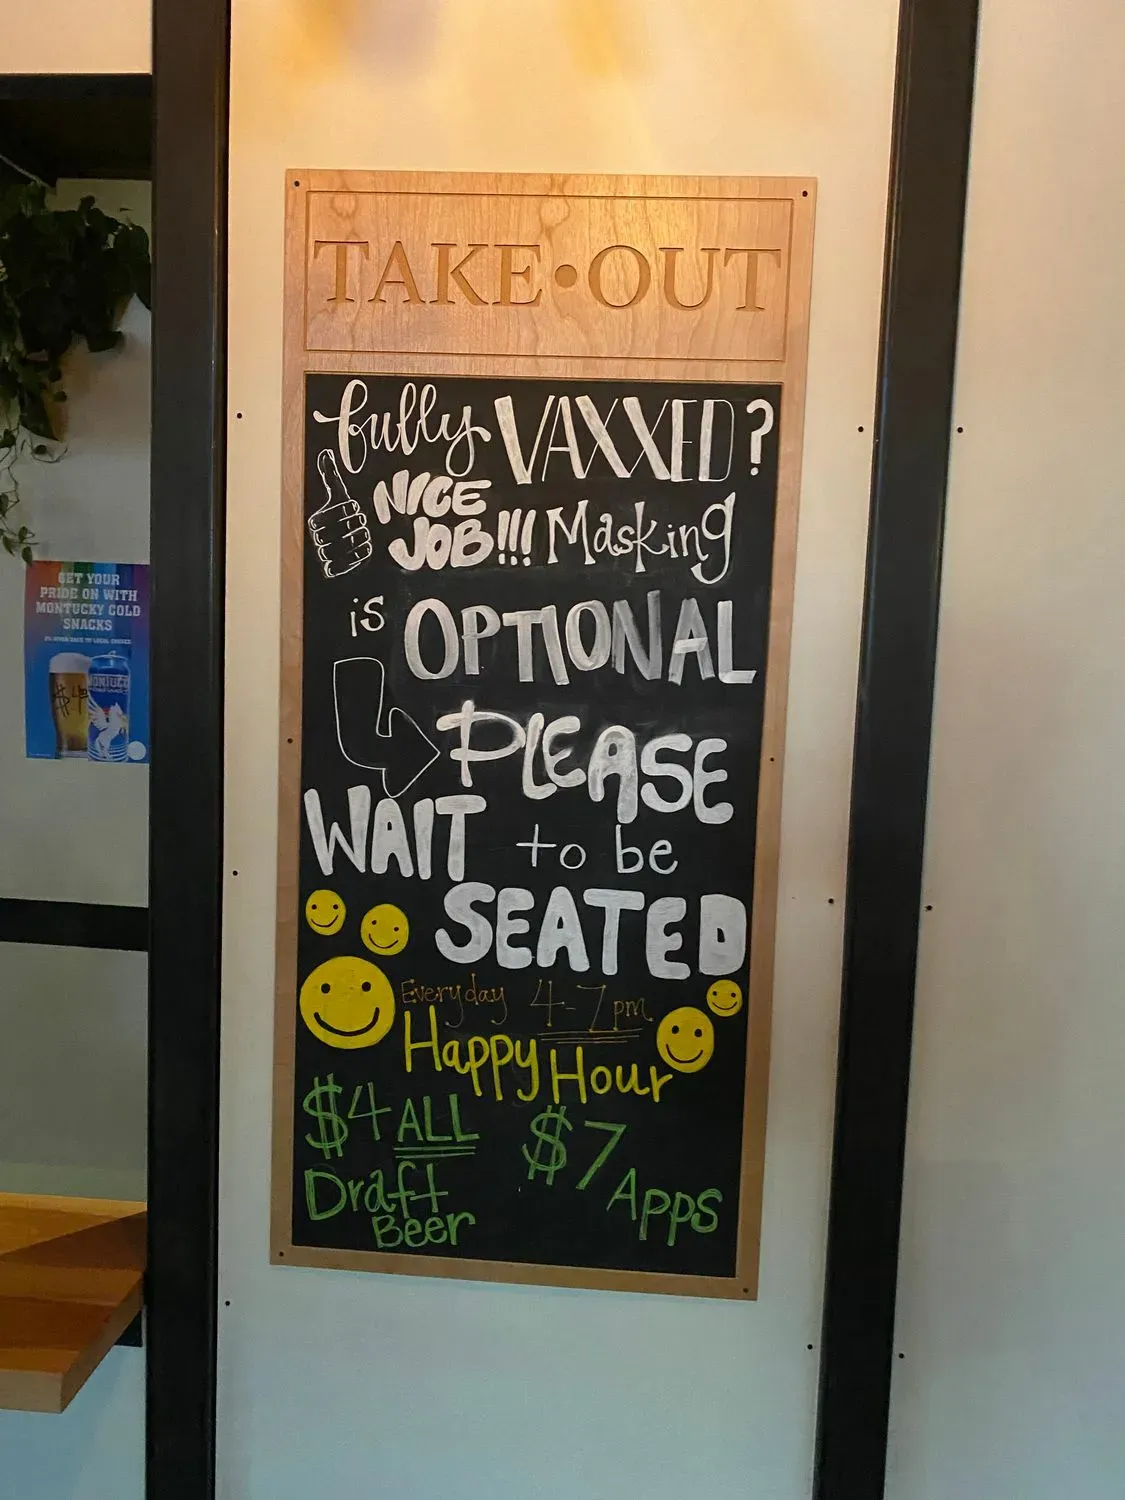 TAKE•OUT
fully VAXXED?
NICE
JOB!!! Masking
is OPTIONAL
PLEASE
WAIT to be
SEATED
Everyday 4-7pm
Happy Hour
$4 ALL
Draft
Beer
$7
Apps
GET YOUR
PRIDE ON WITH
MONTUCKY COLD
SNACKS